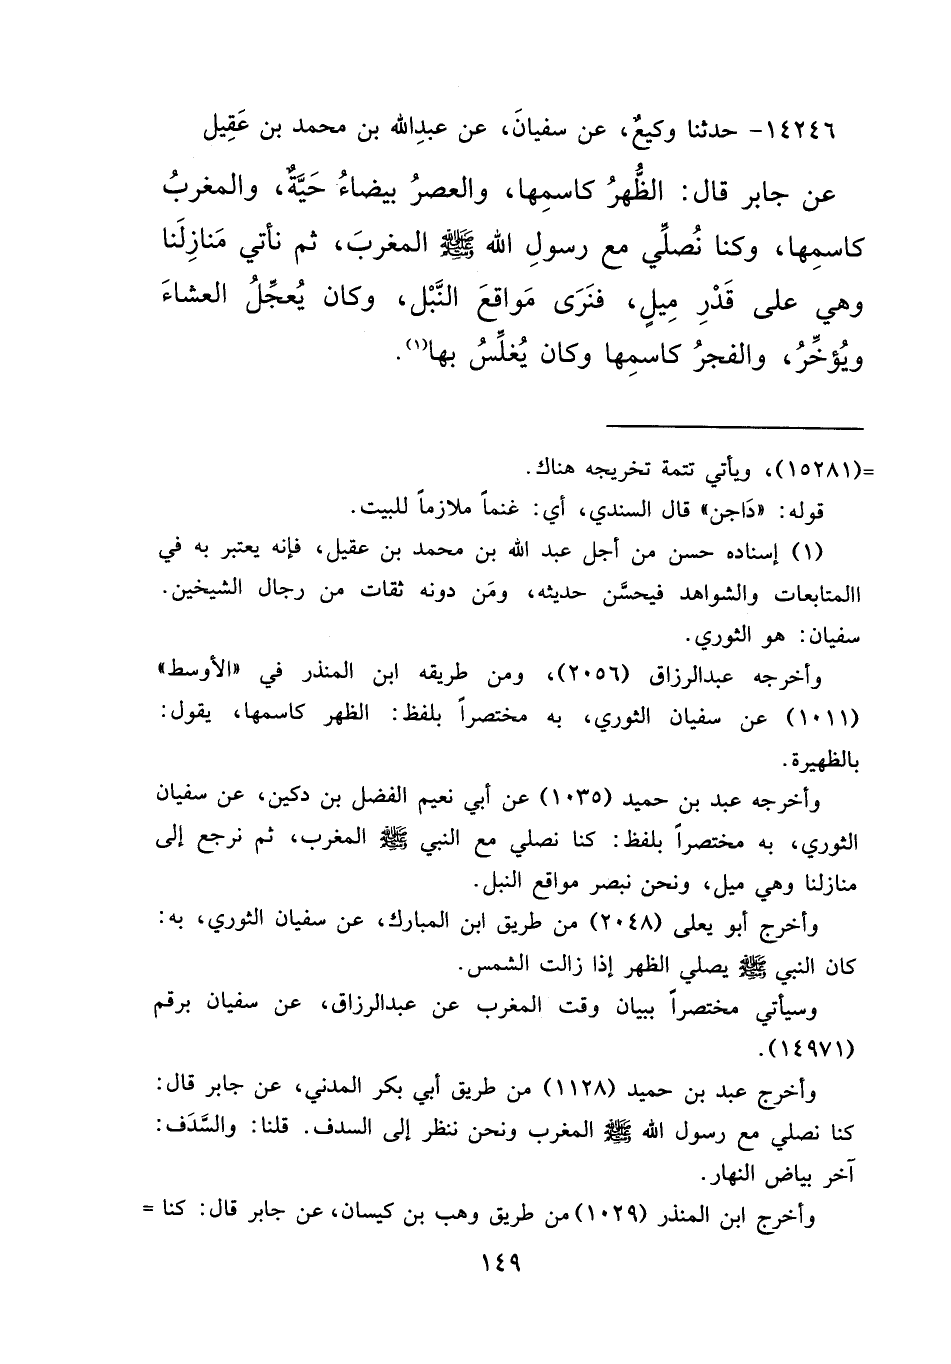 ١٤٢٤٦- حدثنا وكيعٌ، عن سفيانَ، عن عبدِالله بن محمد بن عَقِيل
عن جابر قال: الظُّهرُ كاسمِها، والعصرُ بيضاءُ حَيَّةٌ، والمغربُ
كاسمِها، وكنا نُصلِّي مع رسولِ الله ﷺ المغربَ، ثم نأتي مَنازِلَنا
وهي على قَدْرِ مِيلٍ، فنَرَى مَواقعَ النَّبْل، وكان يُعجِّلُ العشاءَ
ويُؤخِّرُ، والفجرُ كاسمِها وكان يُغلِّسُ بها(١).
=(١٥٢٨١)، ويأتي تتمة تخريجه هناك.
قوله: «دَاجن» قال السندي، أي: غنماً ملازماً للبيت.
(١) إسناده حسن من أجل عبد الله بن محمد بن عقيل، فإنه يعتبر به في
االمتابعات والشواهد فيحسَّن حديثه، ومَن دونه ثقات من رجال الشيخين.
سفيان: هو الثوري.
وأخرجه عبدالرزاق (٢٠٥٦)، ومن طريقه ابن المنذر في «الأوسط»
(١٠١١) عن سفيان الثوري، به مختصراً بلفظ: الظهر كاسمها، يقول:
بالظهيرة.
وأخرجه عبد بن حميد (١٠٣٥) عن أبي نعيم الفضل بن دكين، عن سفيان
الثوري، به مختصراً بلفظ: كنا نصلي مع النبي ﷺ المغرب، ثم نرجع إلى
منازلنا وهي ميل، ونحن نبصر مواقع النبل.
وأخرج أبو يعلى (٢٠٤٨) من طريق ابن المبارك، عن سفيان الثوري، به:
كان النبي ﷺ يصلي الظهر إذا زالت الشمس.
وسيأتي مختصراً ببيان وقت المغرب عن عبدالرزاق، عن سفيان برقم
(١٤٩٧١).
وأخرج عبد بن حميد (١١٢٨) من طريق أبي بكر المدني، عن جابر قال:
كنا نصلي مع رسول الله ﷺ المغرب ونحن ننظر إلى السدف. قلنا: والسَّدَف:
آخر بياض النهار.
وأخرج ابن المنذر (١٠٢٩) من طريق وهب بن كيسان، عن جابر قال: كنا =
١٤٩